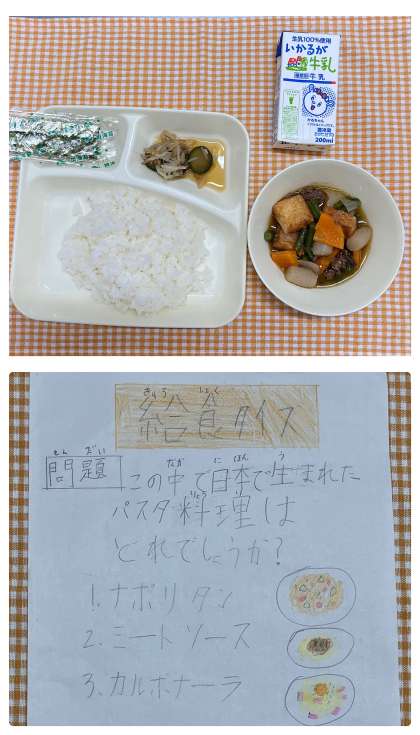 牛乳100%使用
いかるが
牛乳
種類別牛乳
200ml
きゅう しょく
給食クイズ
もん だい
問題
なか に ほん う
この中で日本で生まれた
りょうり
パスタ料理は
どれでしょうか?
1.ナポリタン
2.ミートソース
3.カルボナーラ